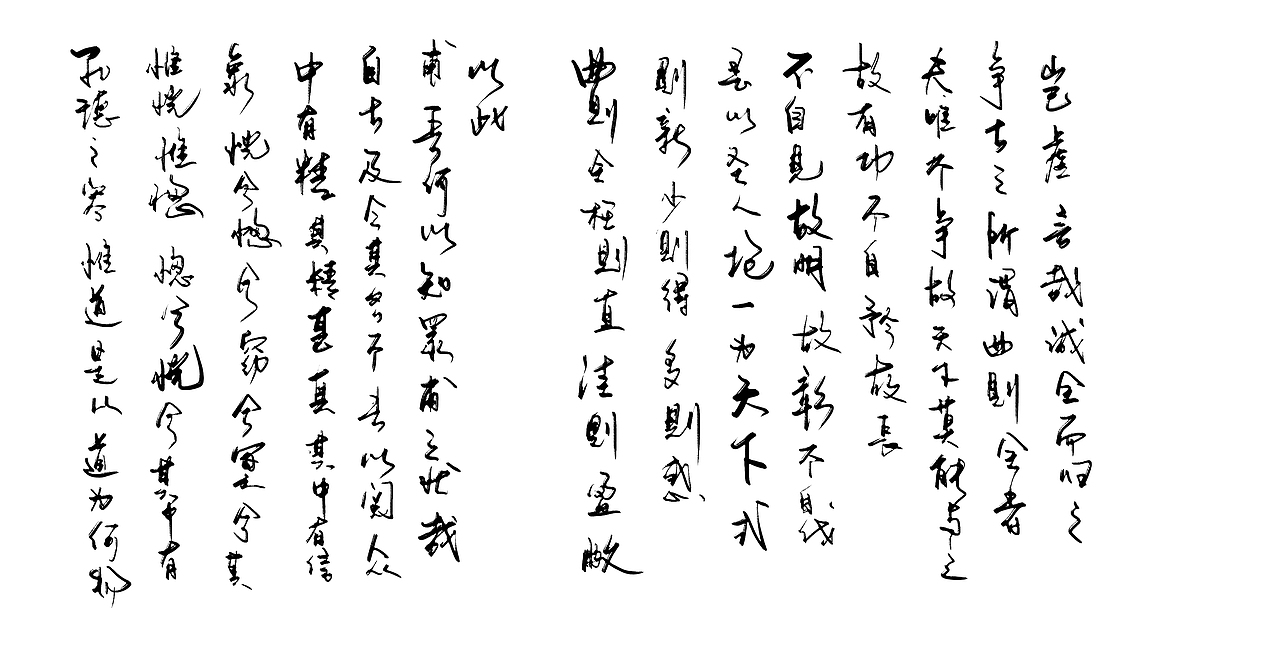 孔德之容惟道是从道为何物
惟恍惟惚惚兮恍兮其中有
象恍兮惚兮窈兮冥兮其
中有精其精甚真其中有信
自古及今其名不去以阅众
甫吾何以知眾甫之状哉
以此
曲则全枉则直洼则盈敝
则新少则得多则惑
是以圣人抱一为天下式
不自见故明故彰不自伐
故有功不自矜故長
夫唯不争故天下莫能与之
争古之所谓曲则全者
岂虚言哉诚全而归之